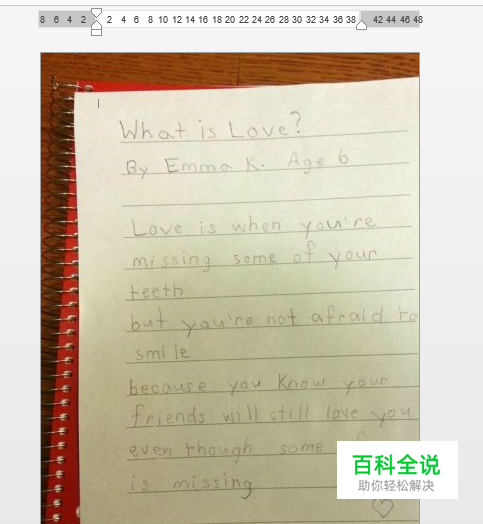 8 6 4 2 2 4 6 8 10 12 14 16 18 20 22 24 26 28 30 32 34 36 38 42 44 46 48
What is Love?
By Emma K. Age 6
Love is when you're
missing some of your
teeth
but you're not afraid to
smile
because you know your
friends will still love you
even though some
is missing
百科全说
助你轻松解决